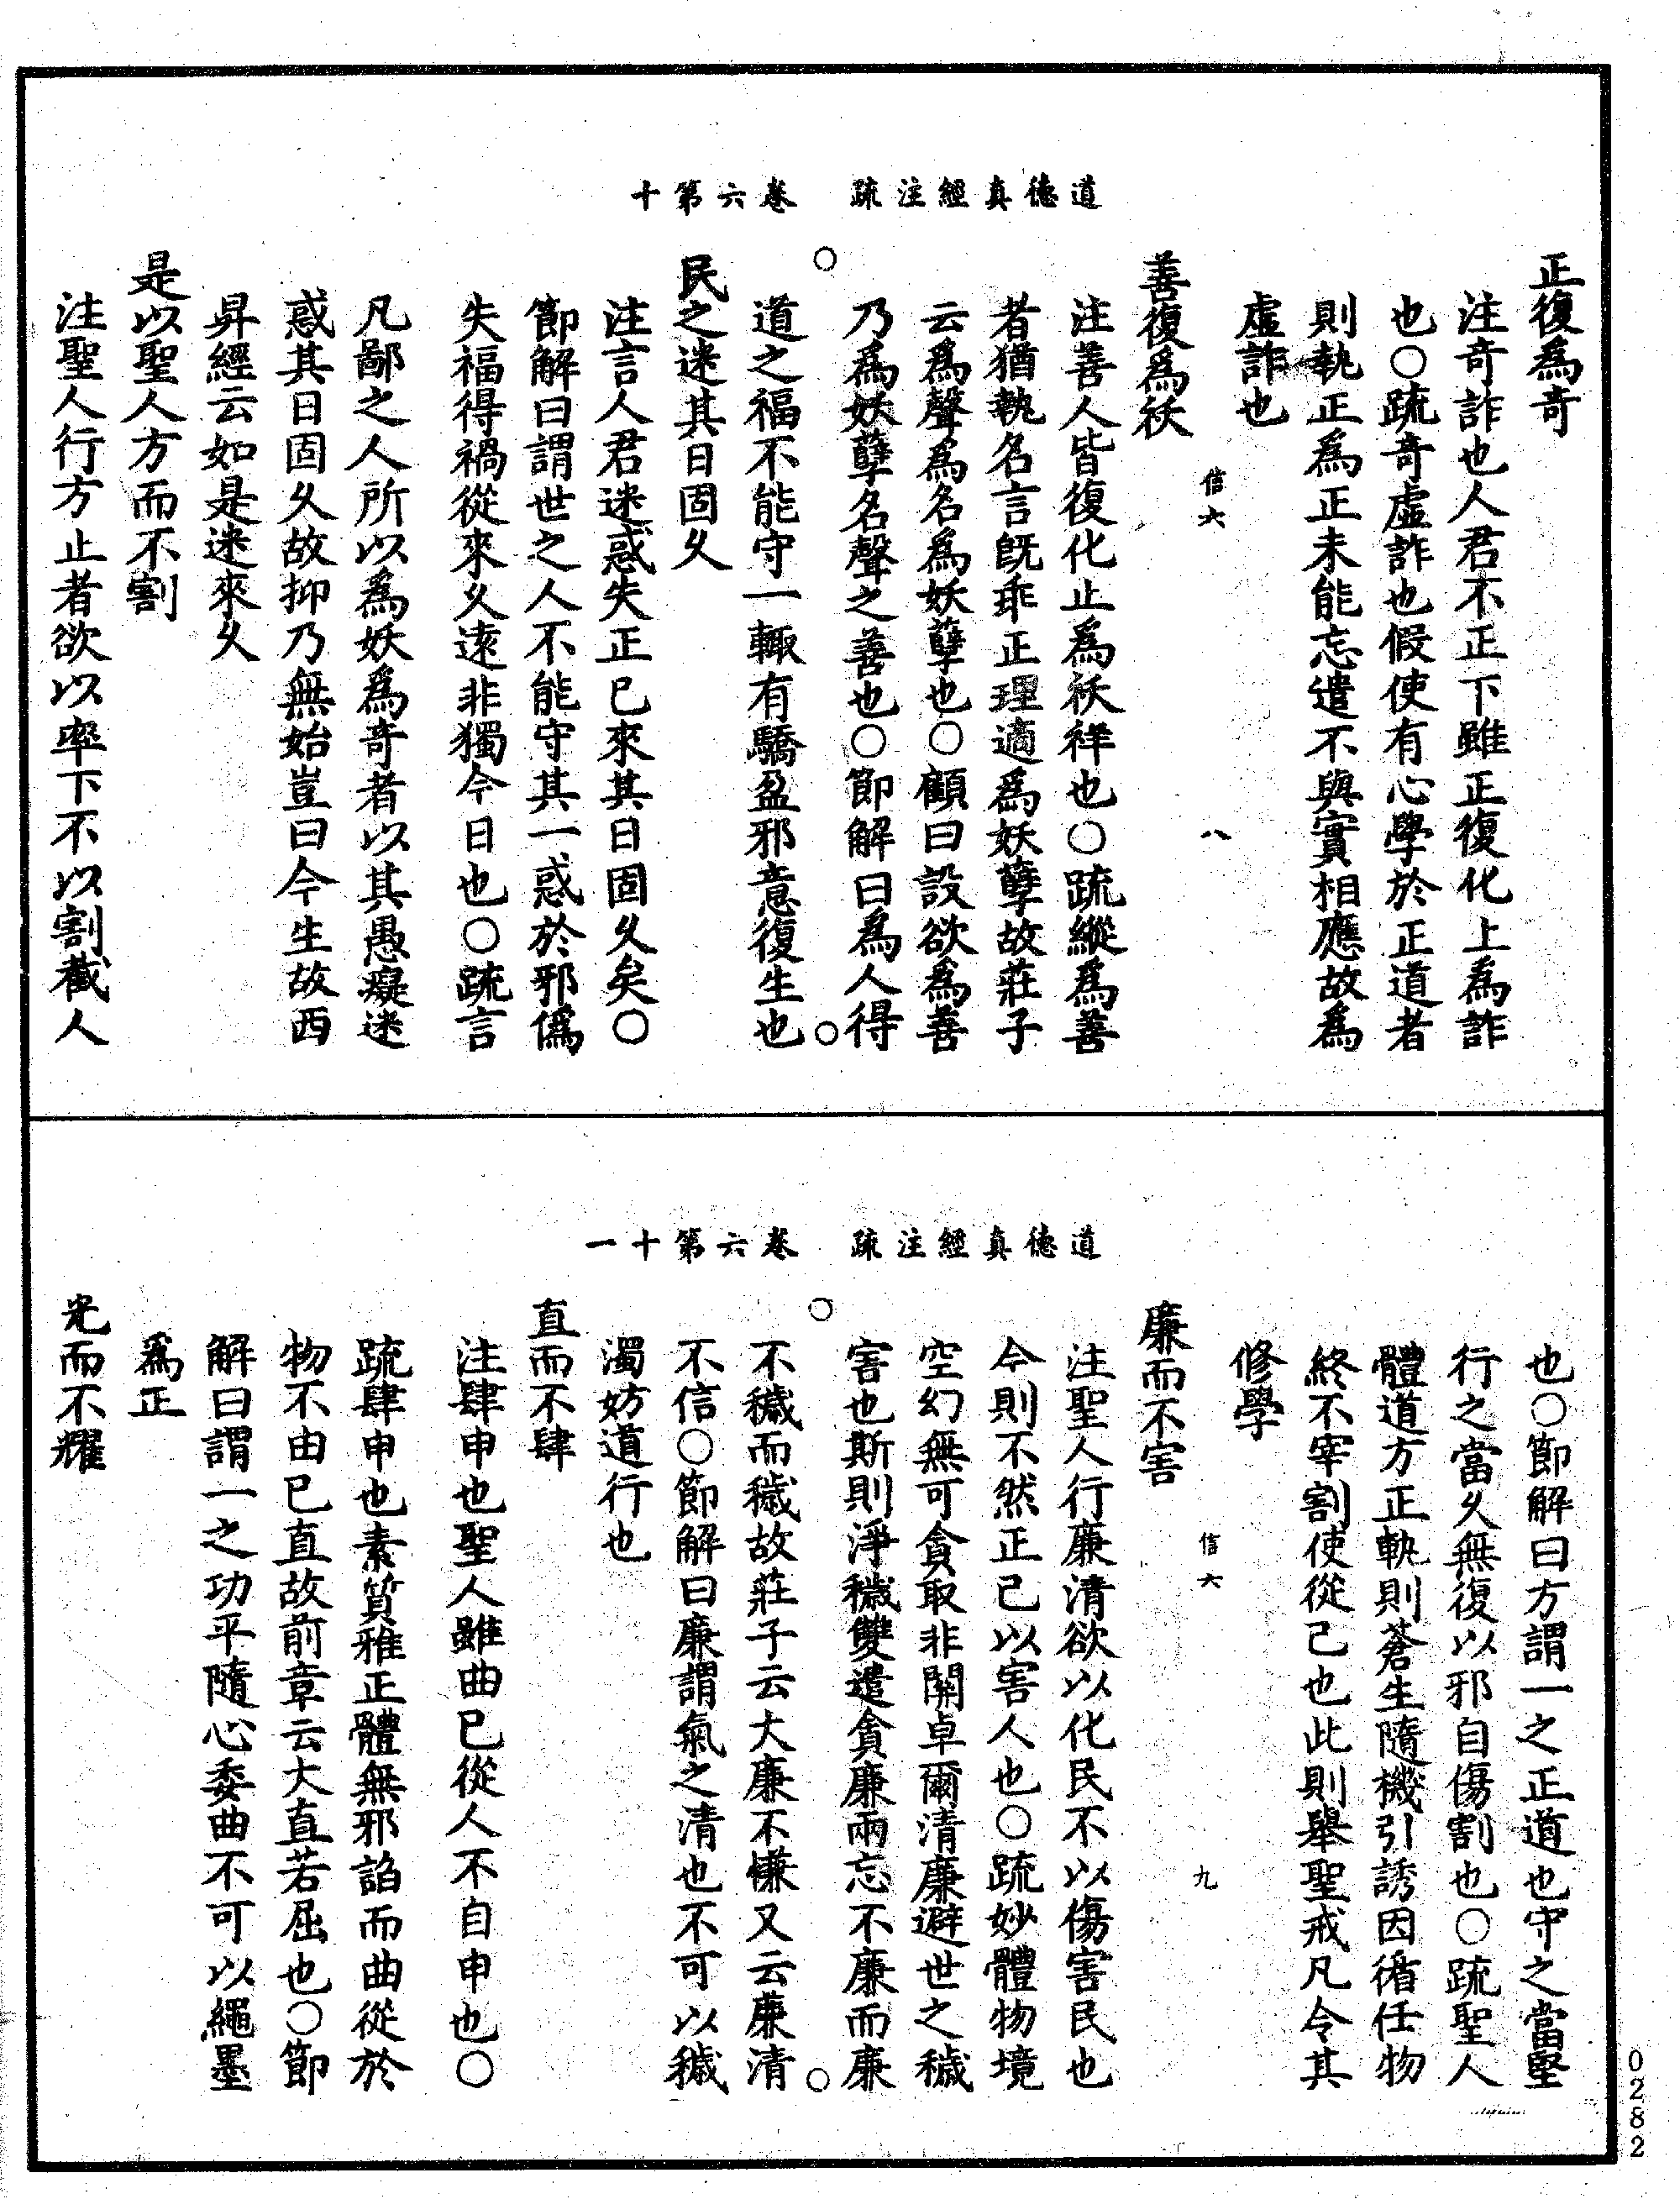 道德真經注疏　卷六第十
正復爲奇
注奇詐也人君不正下雖正復化上爲詐
也○疏奇虛詐也假使有心學於正道者
則執正爲正未能忘遣不與實相應故爲
虛詐也
信六　八
善復爲祅
注善人皆復化止爲祅祥也○疏縱爲善
者猶執名言旣乖正理適爲妖孽故莊子
云爲聲爲名爲妖孽也○顧曰設欲爲善
乃爲妖孽名聲之善也○節解曰爲人得
○　○
道之福不能守一輙有驕盈邪意復生也
民之迷其日固久
注言人君迷惑失正已來其日固久矣○
節解曰謂世之人不能守其一惑於邪僞
失福得禍從來久遠非獨今日也○疏言
凡鄙之人所以爲妖爲奇者以其愚癡迷
惑其日固久故抑乃無始豈曰今生故西
昇經云如是迷來久
是以聖人方而不割
注聖人行方止者欲以率下不以割截人
道德真經注疏　卷六第十一
也○節解曰方謂一之正道也守之當堅
行之當久無復以邪自傷割也○疏聖人
體道方正軌則蒼生隨機引誘因循任物
終不宰割使從己也此則舉聖戒凡令其
修學
信六　九
廉而不害
注聖人行廉清欲以化民不以傷害民也
今則不然正己以害人也○疏妙體物境
空幻無可貪取非關卓爾清廉避世之穢
害也斯則淨穢雙遣貪廉兩忘不廉而廉
○　○
不穢而穢故莊子云大廉不慊又云廉清
不信○節解曰廉謂氣之清也不可以穢
濁妨道行也
直而不肆
注肆申也聖人雖曲已從人不自申也○
疏肆申也素質雅正體無邪諂而曲從於
物不由已直故前章云大直若屈也○節
解曰謂一之功平隨心委曲不可以繩墨
爲正
光而不耀
0282